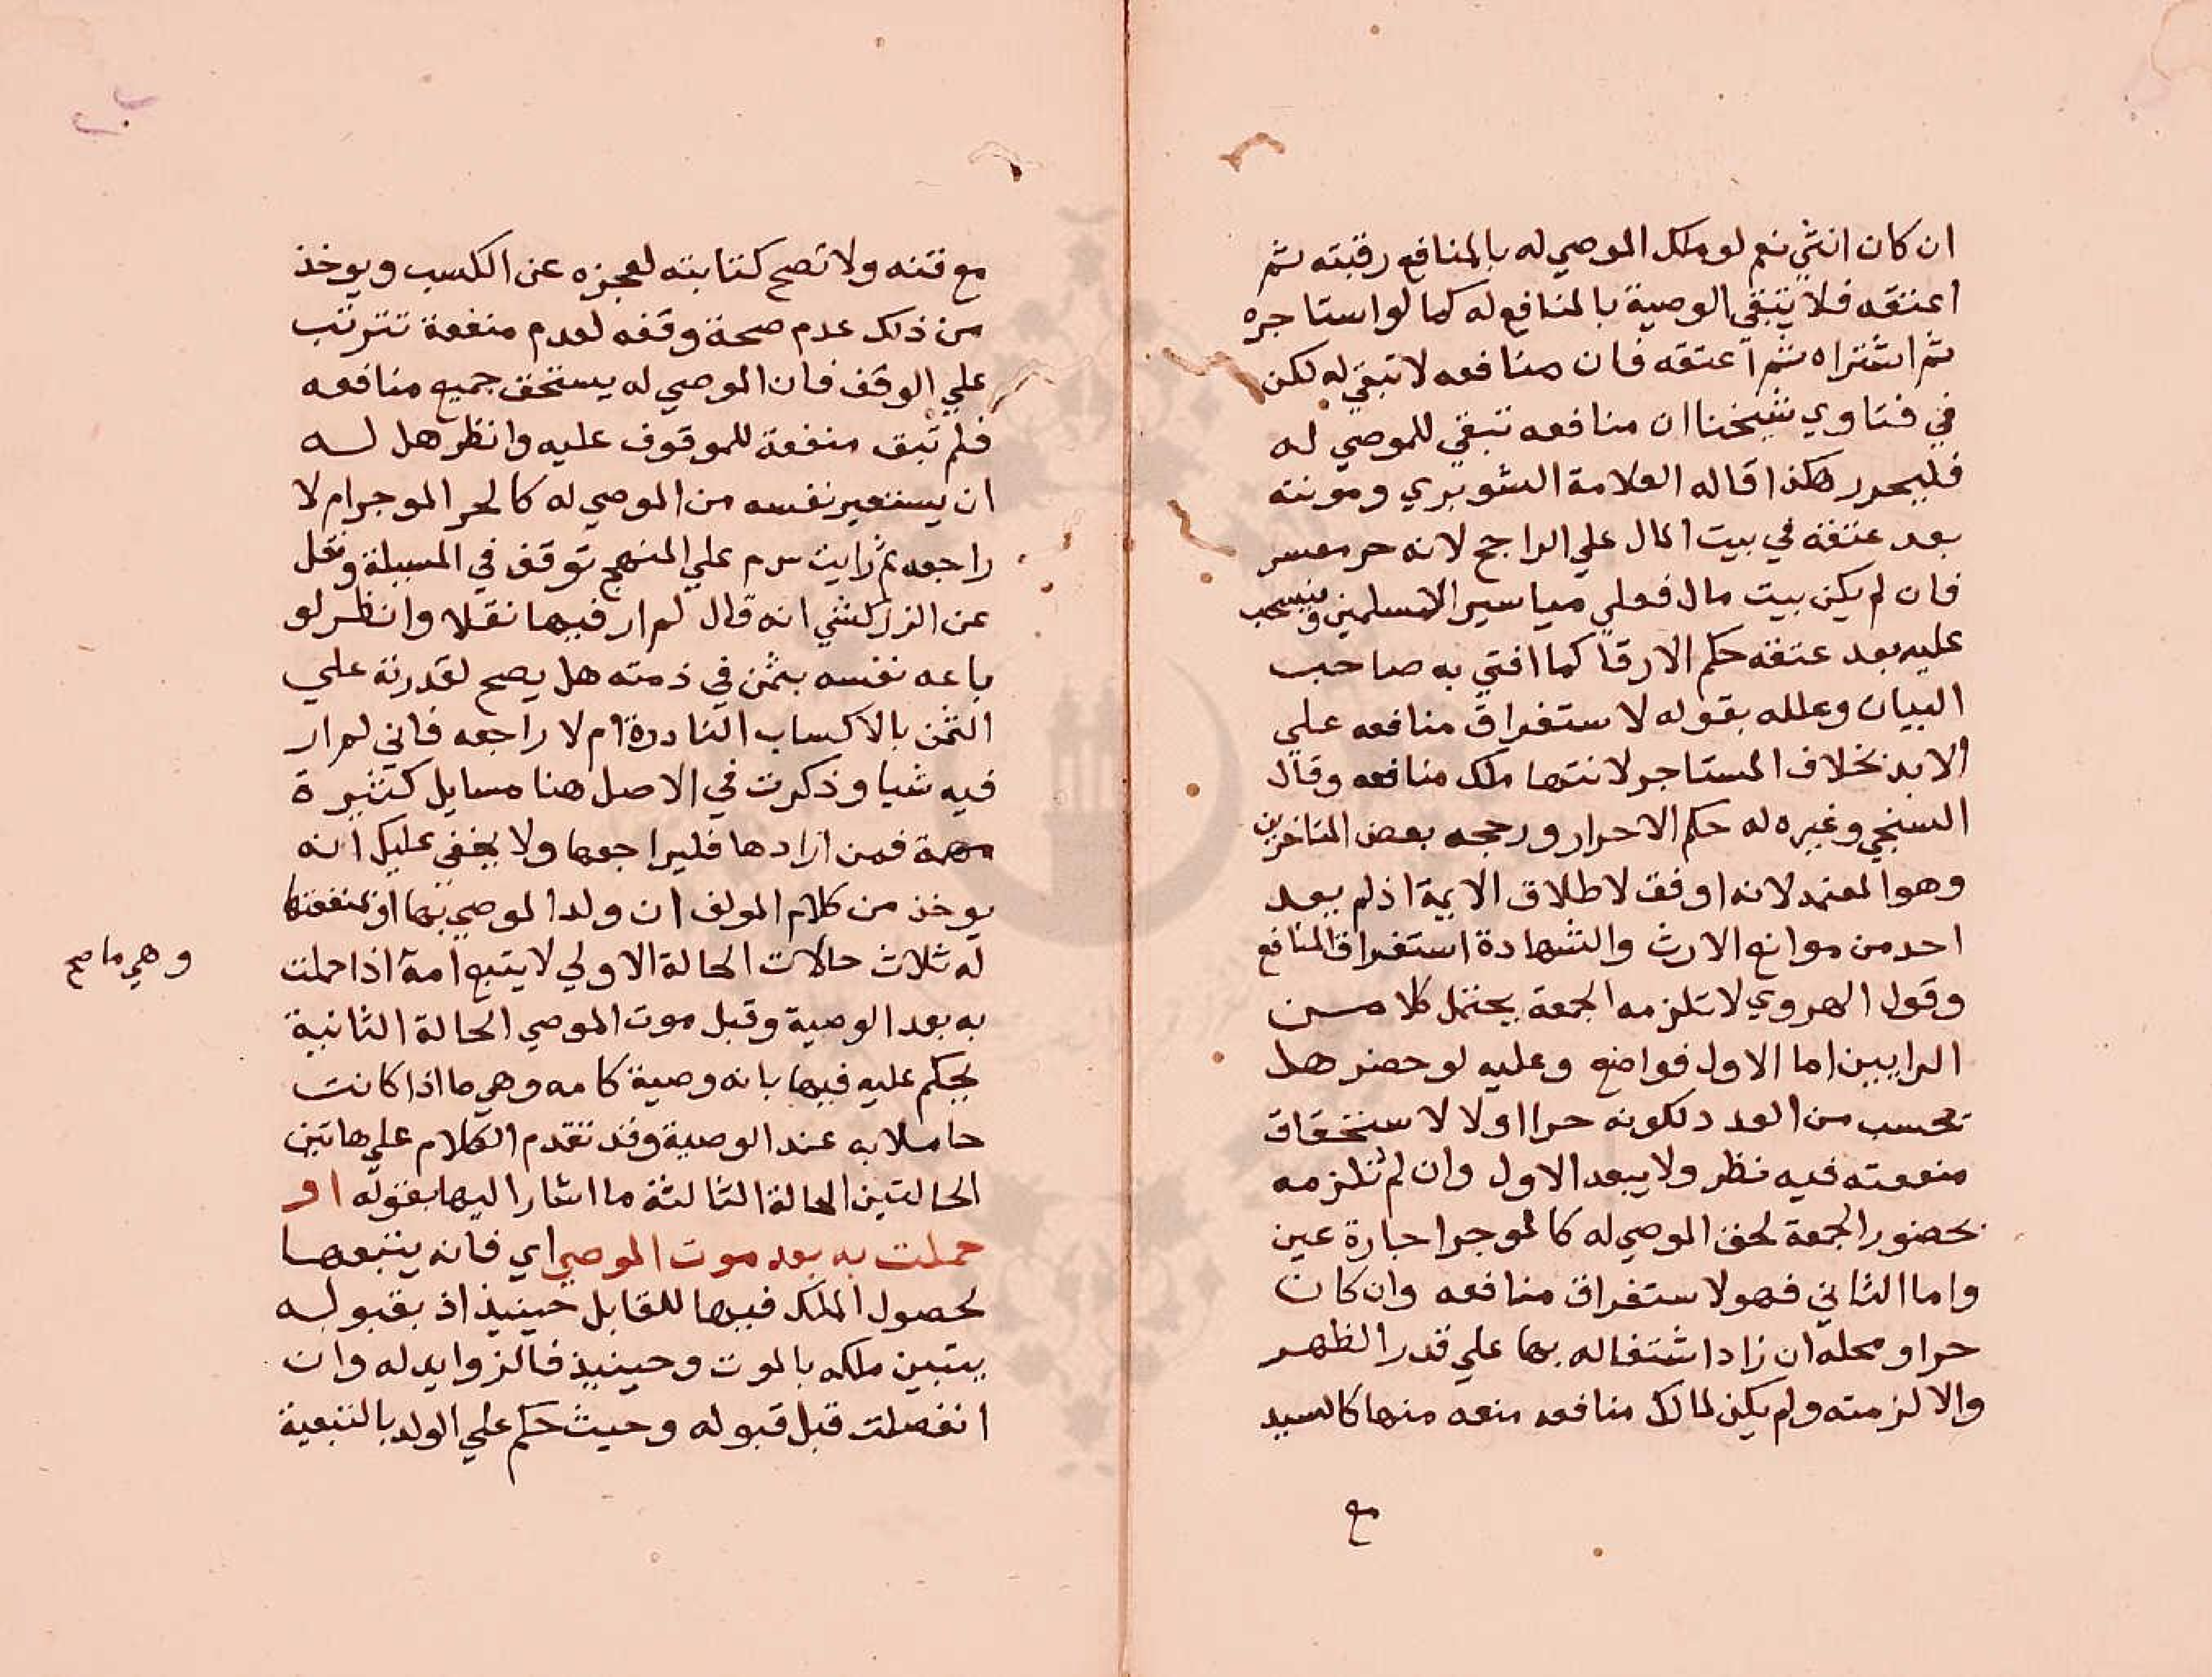 ان كان انثي نعم لو ملك الموصي له بالمنافع رقبته ثم
اعتقه فلا تبقي الوصية بالمنافع له كما لو استاجره
ثم اشتراه ثم اعتقه فان منافعه لا تبقي له لكن
في فتاوي شيخنا ان منافعه تبقي للموصي له
فليحرر هكذا قاله العلامة الشوبري ومونته
بعد عتقه في بيت المال علي الراجح لانه حر معسر
فان لم يكن بيت مال فعلي مياسير المسلمين وينسحب
عليه بعد عتقه حكم الارقا كما افتي به صاحب
البيان وعلله بقوله لاستغراق منافعه علي
الابد بخلاف المستاجر لانتها ملك منافعه وقال
السنجي وغيره له حكم الاحرار ورجحه بعض المتاخرين
وهو المعتمد لانه اوفق لاطلاق الايمة اذ لم يعد
احد من موانع الارث والشهادة استغراق المنافع
وقول الهروي لا تلزمه الجمعة يحتمل كلا مسن
الرايين اما الاول فواضح وعليه لو حضر هل
تحسب من العدد لكونه حرا اولا لاستحقاق
منفعته فيه نظر ولا يبعد الاول وان لم تلزمه
بحضور الجمعة لحق الموصي له كالموجر اجارة عين
واما الثاني فهو لاستغراق منافعه وان كان
حرا ومحله ان زاد اشتغاله بها علي قدر الظهر
والا لزمته ولم يكن لمالك منافعه منعه منها كالسيد
مع
مع قتنه ولا تصح كتابته لعجزه عن الكسب ويوخذ
من ذلك عدم صحة وقفه لعدم منفعة تترتب
علي الوقف فان الموصي له يستحق جميع منافعه
فلم تبق منفعة للموقوف عليه وانظر هل له
ان يستعير نفسه من الموصي له كالحر الموجر ام لا
راجعه ثم رايت سم علي المنهج توقف في المسيلة ونقل
عن الزركشي انه قال لم ار فيها نقلا وانظر لو
باعه نفسه بثمن في ذمته هل يصح لقدرته علي
الثمن بالاكساب النادرة ام لا راجعه فاني لم ار
فيه شيا وذكرت في الاصل هنا مسايل كثيرة
مهمة فمن ارادها فليراجعها ولا يخفي عليك انه
يوخذ من كلام المولف ان ولد الموصي بها او بمنفعتها
له ثلاث حالات الحالة الاولي لا يتبع امه اذا حملت
وهي ما صح
به بعد الوصية وقبل موت الموصي الحالة الثانية
يحكم عليه فيها بانه وصية كامه وهي ما اذا كانت
حاملا به عند الوصية وقد تقدم الكلام علي هاتين
الحالتين الحالة الثالثة ما اشار اليها بقوله او
حملت به بعد موت الموصي اي فانه يتبعها
لحصول الملك فيها للقابل حينيذ اذ بقبوله
يتبين ملكه بالموت وحينيذ فالزوايد له وان
انفصلت قبل قبوله وحيث حكم علي الولد بالتبعية